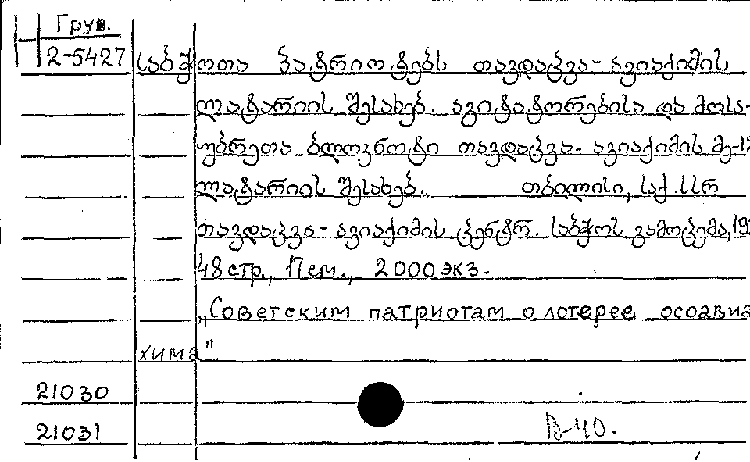 Груз.
2-5427 საბჭოთა პატრიოტებს თავდაცვა-ავიაქიმის
ლატარიის შესახებ. აგიტატორებისა და მოსა-
უბრეთა ბლოკნოტი თავდაცვა-ავიაქიმის მე-17
ლატარიის შესახებ. თბილისი, საქ. სსრ
თავდაცვა-ავიაქიმის ცენტრ. საბჭოს გამოცემა, 19
48 стр., 17 см., 2000 экз.
„Советским патриотам о лотерее осоавиа
хима"
21030
21031 В-40.